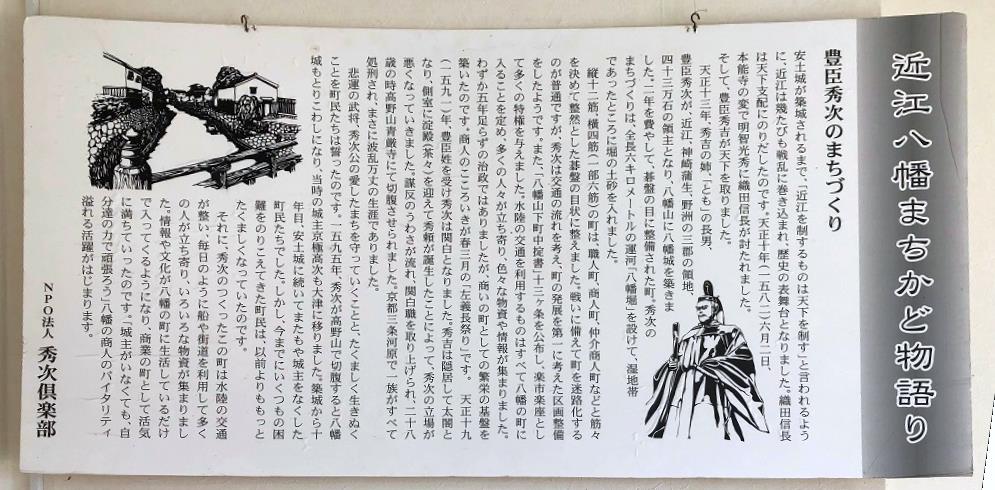 近江八幡まちかど物語り
豊臣秀次のまちづくり
安土城が築城されるまで、「近江を制するものは天下を制す」と言われるよう
に、近江は幾たびも戦乱に巻き込まれ、歴史の表舞台となりました。織田信長
は天下支配にのりだしたのです。天正十年(一五八二)六月二日、
本能寺の変で明智光秀に織田信長が討たれました。
そして、豊臣秀吉が天下を取りました。
天正十三年、秀吉の姉、「とも」の長男、
豊臣秀次が、近江、神崎、蒲生、野洲の三郡の領地、
四十三万石の領主となり、八幡山に八幡城を築きま
した。二年を費やして、碁盤の目に整備された町。秀次の
まちづくりは、全長六キロメートルの運河「八幡堀」を設けて、湿地帯
であったところに堀の土砂を入れました。
縦十二筋、横四筋(一部六筋)の町は、職人町、商人町、仲介商人町などと筋々
を決めて整然とした碁盤の目状に整えました。戦いに備えて町を迷路化する
のが普通ですが、秀次は交通の流れを考え、町の発展を第一に考えた区画整備
をしたようです。また、「八幡山下町中掟書」十三ヶ条を公布し、楽市楽座とし
て多くの特権を与えました。水陸の交通を利用するものはすべて八幡の町に
入ることを定め、多くの人々が立ち寄り、色々な物資や情報が集まりました。
わずか五年足らずの治政ではありましたが、商いの町としての繁栄の基盤を
築いたのです。商人のこころいきが春三月の「左義長祭り」です。 天正十九
(一五九一)年、豊臣姓を受け秀次は関白となりました。秀吉は隠居して太閤と
なり、側室に淀殿(茶々)を迎えて秀頼が誕生したことによって、秀次の立場が
悪くなっていきました。謀反のうわさが流れ、関白職を取り上げられ、二十八
歳の時高野山青厳寺にて切腹させられました。京都三条河原で一族がすべて
処刑され、まさに波乱万丈の生涯でありました。
悲運の武将、秀次公の愛したまちを守っていくことと、たくましく生きぬく
ことを町民たちは誓ったのです。一五九五年、秀次が高野山で切腹すると八幡
城もとりこわしになり、当時の城主京極高次も大津に移りました。築城から十
年目、安土城に続いてまたもや城主をなくした
町民たちでした。しかし、今までにいくつもの困
難をのりこえてきた町民は、以前よりももっと
たくましくなっていたのです。
それに、秀次のつくったこの町は水陸の交通
が整い、毎日のように船や街道を利用して多く
の人が立ち寄り、いろいろな物資が集まりまし
た。情報や文化が八幡の町に生活しているだけ
で入ってくるようになり、商業の町として活気
に満ちていったのです。「城主がいなくても、自
分達の力で頑張ろう」八幡の商人のバイタリティ
溢れる活躍がはじまります。
NPO法人 秀次倶楽部